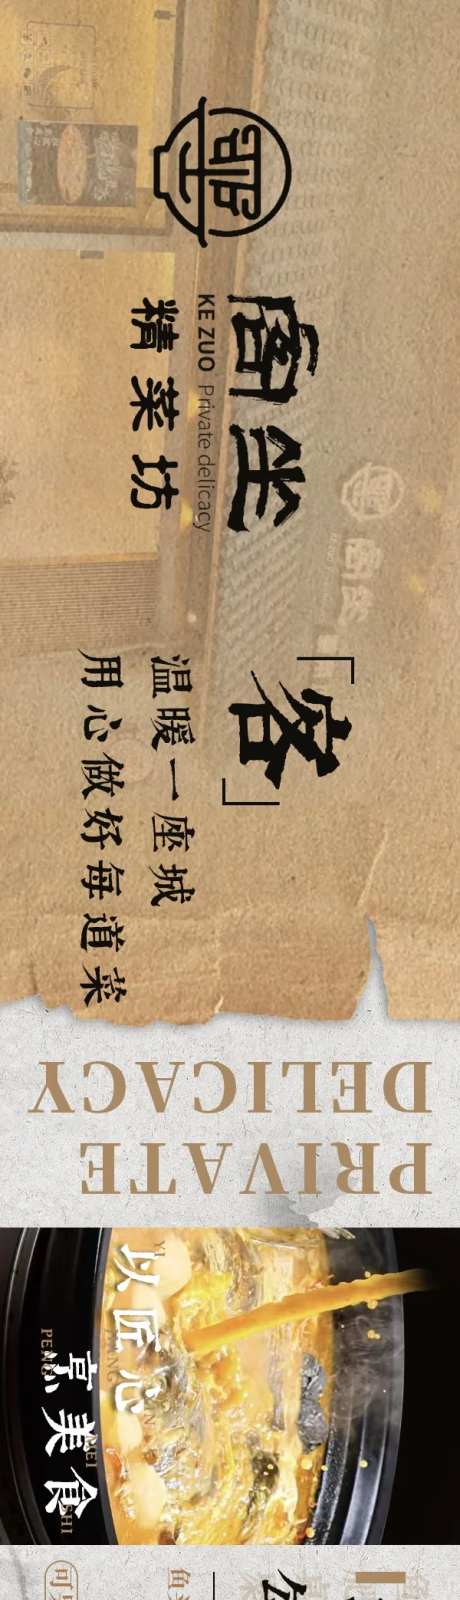 客坐
KE ZUO Private delicacy
精菜坊
「客」
温暖一座城
用心做好每道菜
PRIVATE
DELICACY
以匠心
烹美食